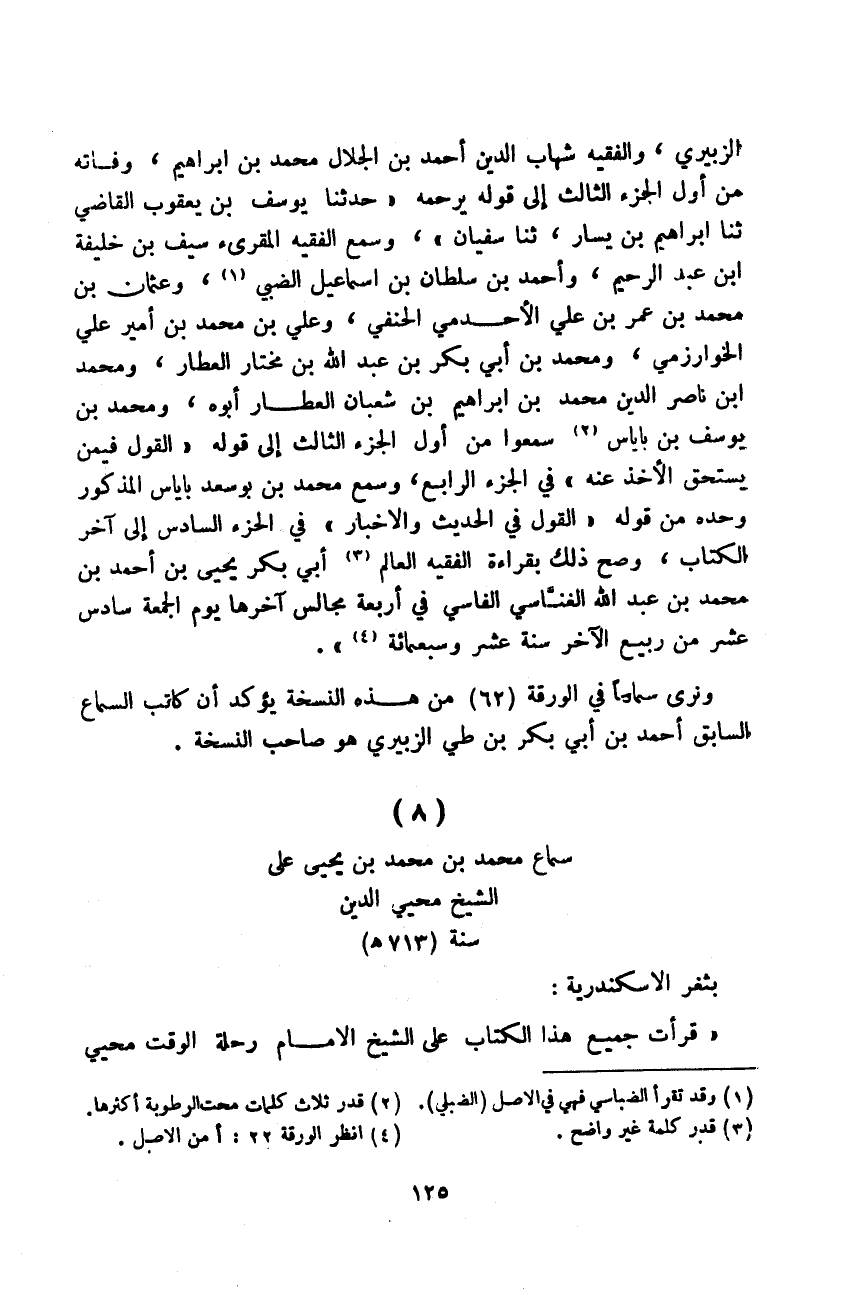 الزبيري ، والفقيه شهاب الدين أحمد بن الجلال محمد بن ابراهيم ، وفـاته
من أول الجزء الثالث إلى قوله يرحمه « حدثنا يوسف بن يعقوب القاضي
ثنا ابراهيم بن يسار ، ثنا سفيان » ، وسمع الفقيه المقرىء سيف بن خليفة
ابن عبد الرحيم ، وأحمد بن سلطان بن اسماعيل الضبي (١) ، وعثمان بن
محمد بن عمر بن علي الأحـدمي الحنفي ، وعلي بن محمد بن أمير علي
الخوارزمي ، ومحمد بن أبي بكر بن عبد الله بن مختار العطار ، ومحمد
ابن ناصر الدين محمد بن ابراهيم بن شعبان العطـار أبوه ، ومحمد بن
يوسف بن باياس (٢) سمعوا من أول الجزء الثالث إلى قوله « القول فيمن
يستحق الأخذ عنه » في الجزء الرابع، وسمع محمد بن بوسعد باياس المذكور
وحده من قوله « القول في الحديث والاخبار » في الجزء السادس إلى آخر
الكتاب ، وصح ذلك بقراءة الفقيه العالم (٣) أبي بكر يحيى بن أحمد بن
محمد بن عبد الله الغسَّاسي الفاسي في أربعة مجالس آخرها يوم الجمعة سادس
عشر من ربيع الآخر سنة عشر وسبعمائة (٤) » .
ونرى سماعاً في الورقة (٦٢) من هـذه النسخة يؤكد أن كاتب السماع
السابق أحمد بن أبي بكر بن طي الزبيري هو صاحب النسخة .
(٨)
سماع محمد بن محمد بن يحيى على
الشيخ محيي الدين
سنة (٧١٣ه)
بثغر الاسكندرية :
« قرأت جميع هذا الكتاب على الشيخ الامـام رحلة الوقت محيي
(١) وقد تقرأ الضباسي فهي في الاصل (الضبلي). (٢) قدر ثلاث كلمات محت الرطوبة أكثرها.
(٣) قدر كلمة غير واضح . (٤) انظر الورقة ٢٢ : أ من الاصل .
١٢٥